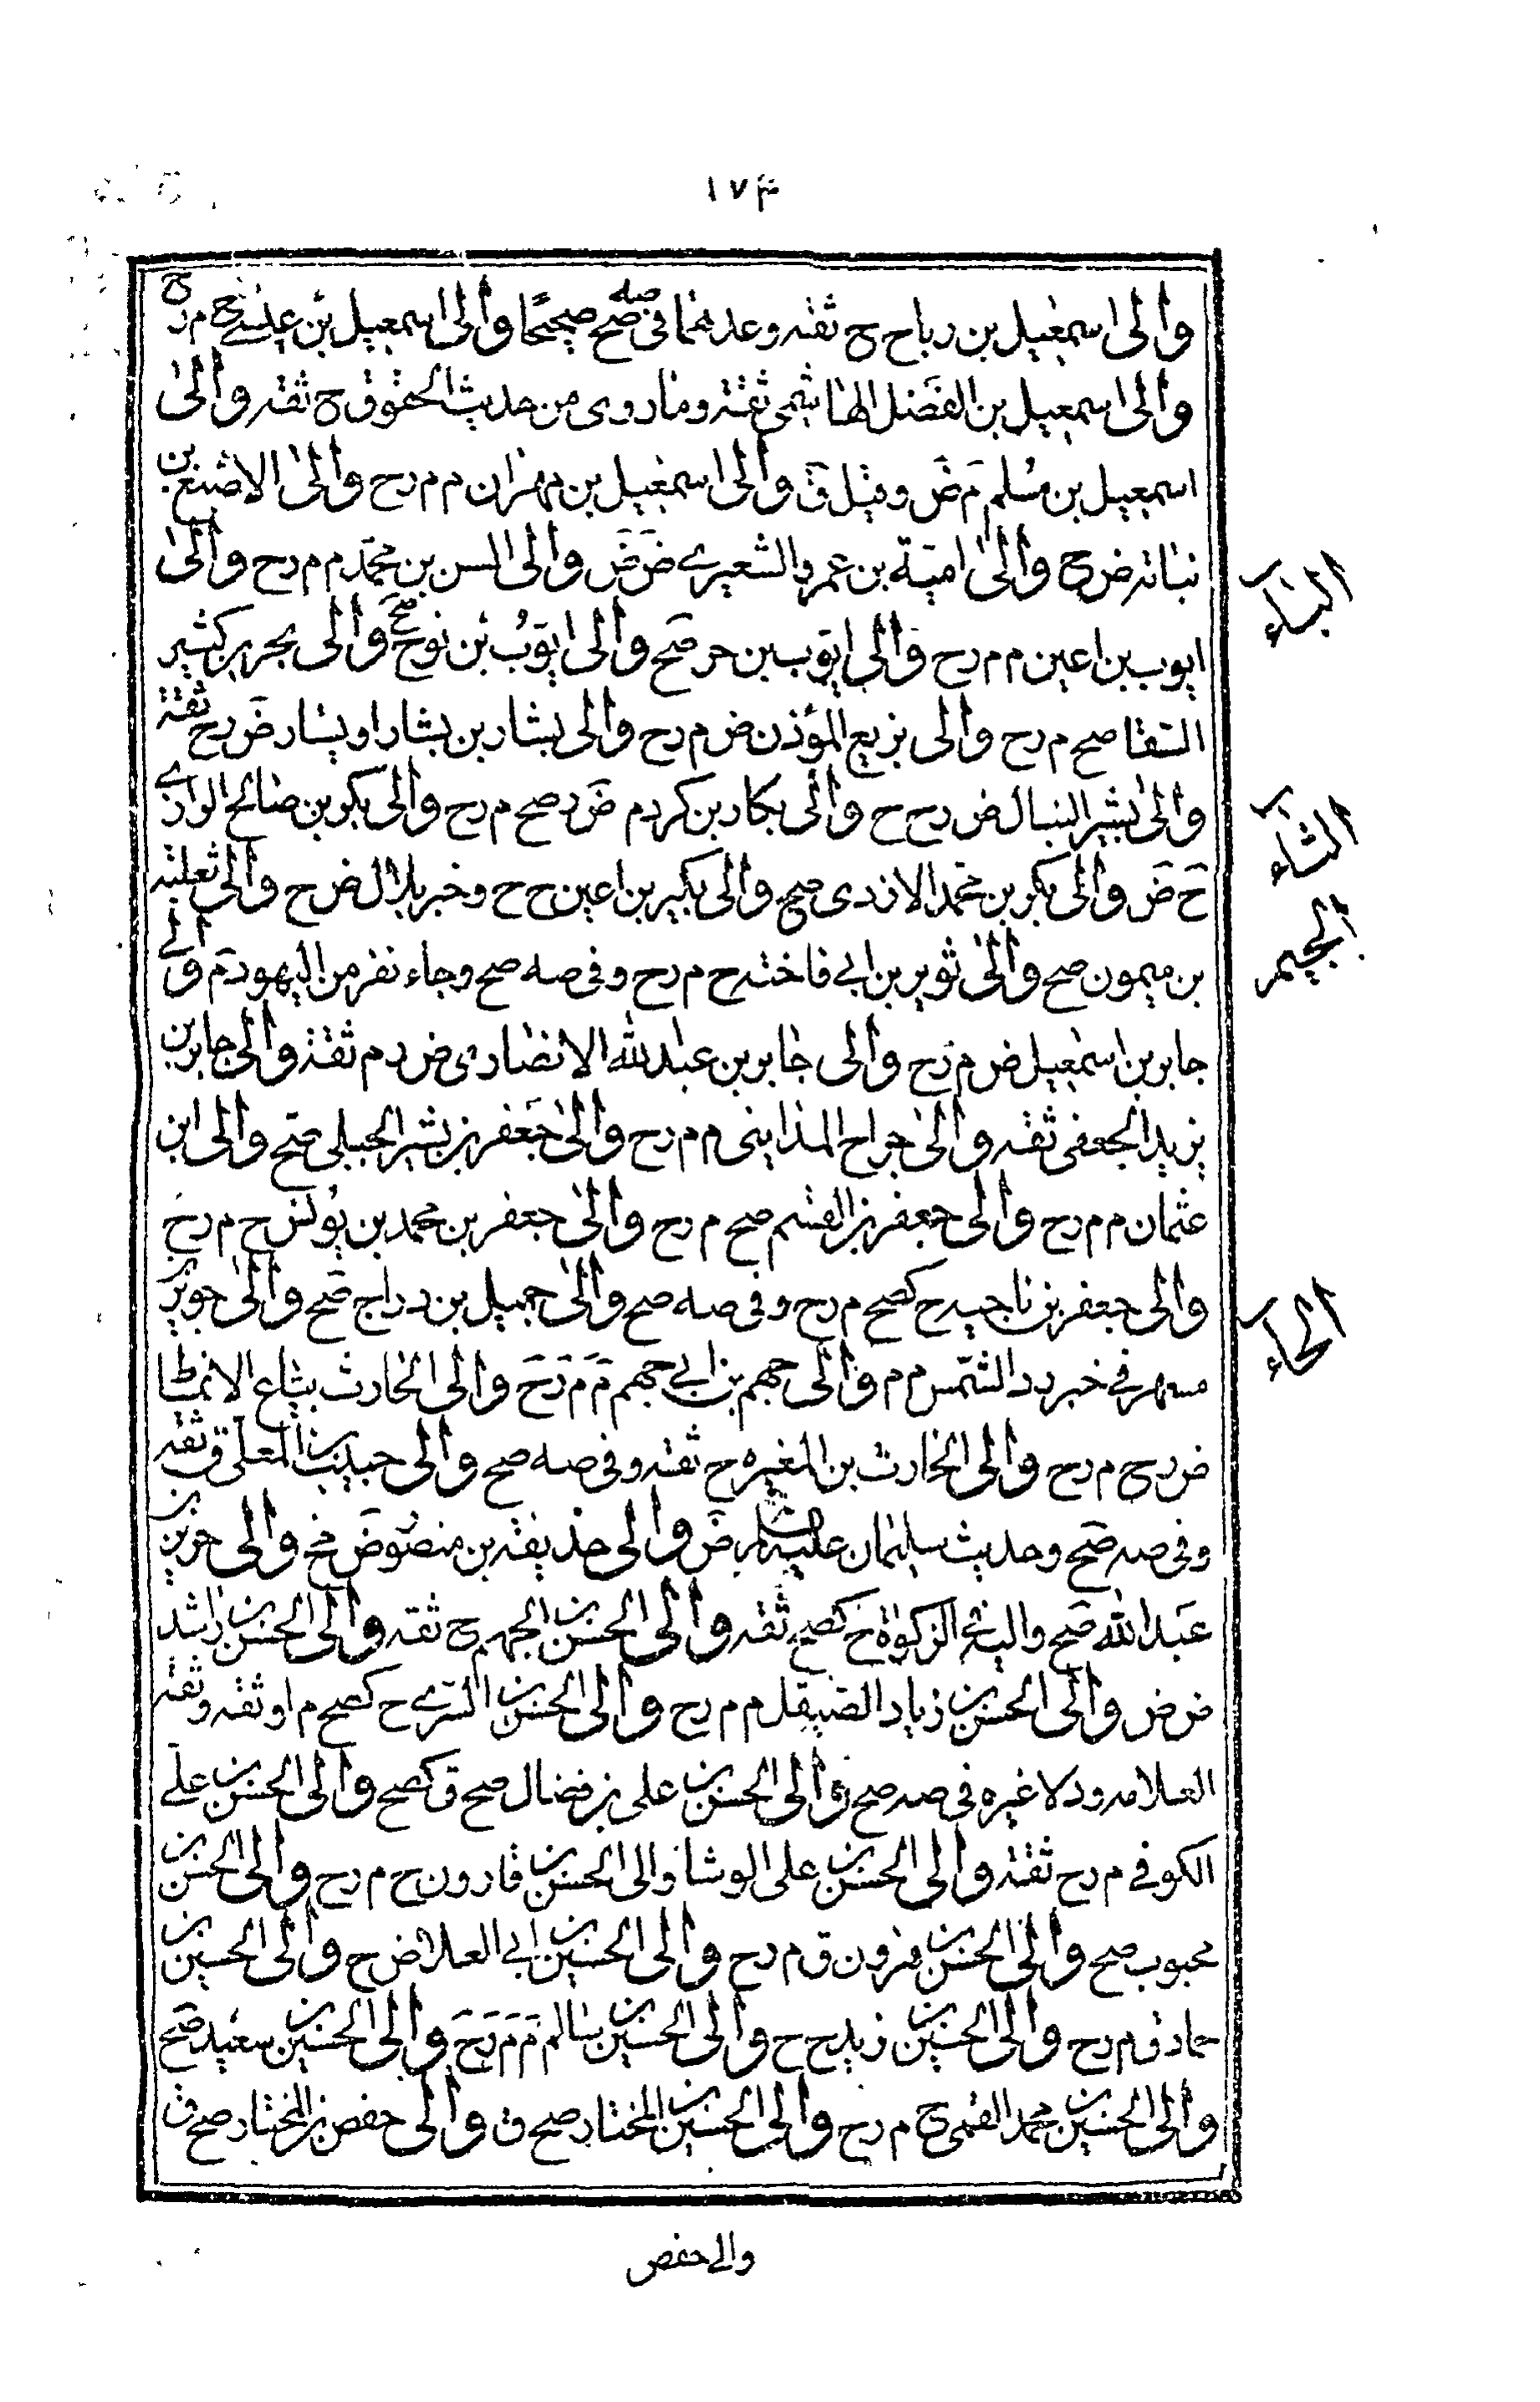 ١٧٤
والى اسمعيل بن رباح ح ثقه وعدهما فى صه صح صحيحا والى اسمعيل بن عيسى ح م رح
والى اسمعيل بن الفضل الهاشمى ثقة وما روى من حديث الحقوق ح ثقه والى
اسمعيل بن مسلم م ض وقيل ق والى اسمعيل بن مهران م م رح والى الاصبغ بن
نباته ض ح والى امية بن عمرو الشعيرے ض ض والى الحسن بن محمد م م رح والى
ايوب بن اعين م م رح والى ايوب بن حر صح والى ايوب بن نوح صح والى بحر بن كثير
السقا صح م رح والى بزيع المؤذن ض م رح والى بشار بن بشار او يسار ض رح ثقة
والى بشير النبال ض رح ح والى بكار بن كردم ض رد صح م رح والى بكر بن صالح الرازے
ح ض والى بكر بن محمد الازدى صح والى بكير بن اعين ح ح وخبر بلال ض ح والى ثعلبة
بن ميمون صح والى ثوير بن ابے فاخته ح م رح وفى صه صح وجاء نفر من اليهود م والے
جابر بن اسمعيل ض م رح والى جابر بن عبد الله الانصارى ض رد م ثقة والى جابر بن
يزيد الجعفى ثقه والى جراح المداينى م م رح والى جعفر بن بشير البجلى صح والى ابن
عثمان م م رح والى جعفر بن القسم صح م رح والى جعفر بن محمد بن يونس ح م رح
والى جعفر بن ناجيه ح كصح م رح وفى صه صح والى جميل بن دراج صح والى جويرية بن
مسهر فے خبر رد الشمس م م والى جهم بن ابے جهم م م رح والى الحارث بياع الانماط
ض رح م رح والى الحارث بن المغيره ح ثقه وفى صه صح والى حبيب بن المعلى ق ثقه
وفى صه صح وحديث سليمان عليه السلام ض والى حذيفه بن منصور ض صح والى حريز بن
عبد الله صح والى الزكوة ح كصح ثقه والى الحسن بن الجهم ح ثقه والى الحسن بن راشد
ض ض والى الحسن بن زياد الصيقل م م رح والى الحسن بن السرے ح كصح م او ثقه وثقه
العلامه ود لا غيره فى صه صح والى الحسن بن على بن فضال صح ق كصح والى الحسن بن علے
الكوفے م رح ثقة والى الحسن بن على الوشا والى الحسن بن قارون ح م رح والى الحسن بن
محبوب صح والى الحسن بن هرون ق م رح والى الحسين بن ابے العلا ض ح والى الحسين بن
حماد ق م رح والى الحسين بن زيد ح ح والى الحسين بن سالم م م رح والى الحسين بن سعيد صح
والى الحسين بن محمد القمى ح م رح والى الحسين بن المختار صح ق والى حفص بن البختر صح ق
والے حفص
الباء
الثاء
الجيم
الحاء